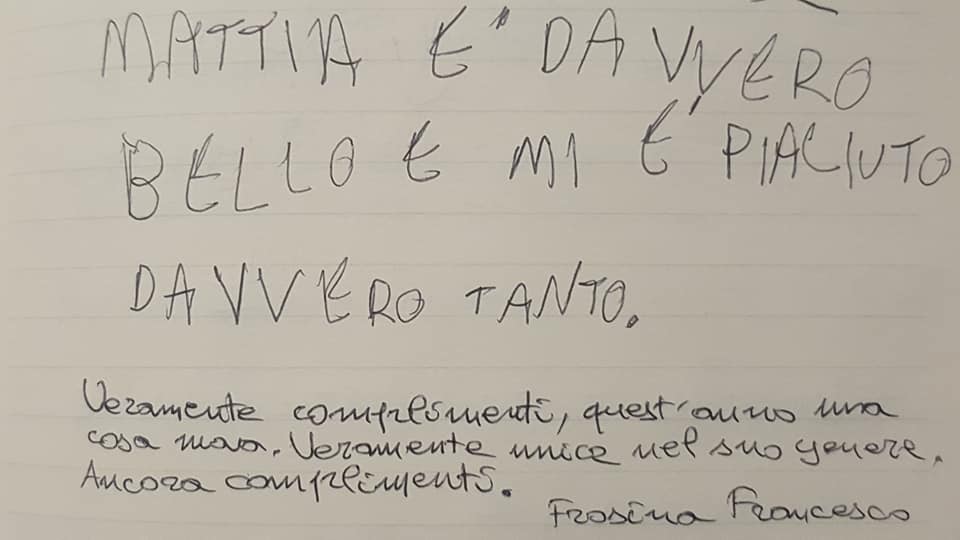 MATTIA E' DAVVERO
BELLO E MI É PIACIUTO
DAVVERO TANTO.
Veramente complimenti, quest'anno una
cosa nuova. Veramente unica nel suo genere.
Ancora complimenti.
Frosina Francesco